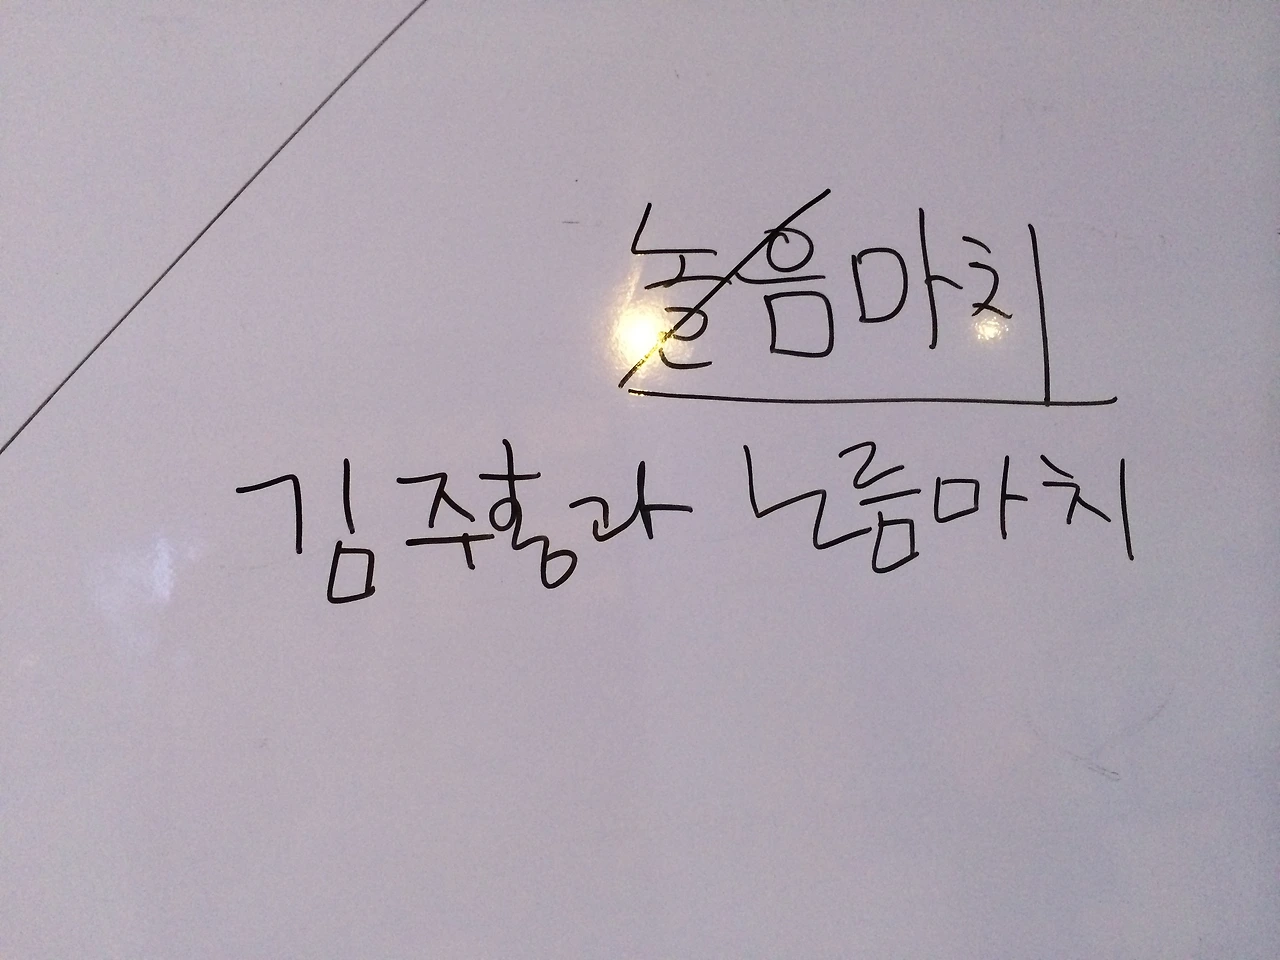 놀음마치
김주홍과 노름마치